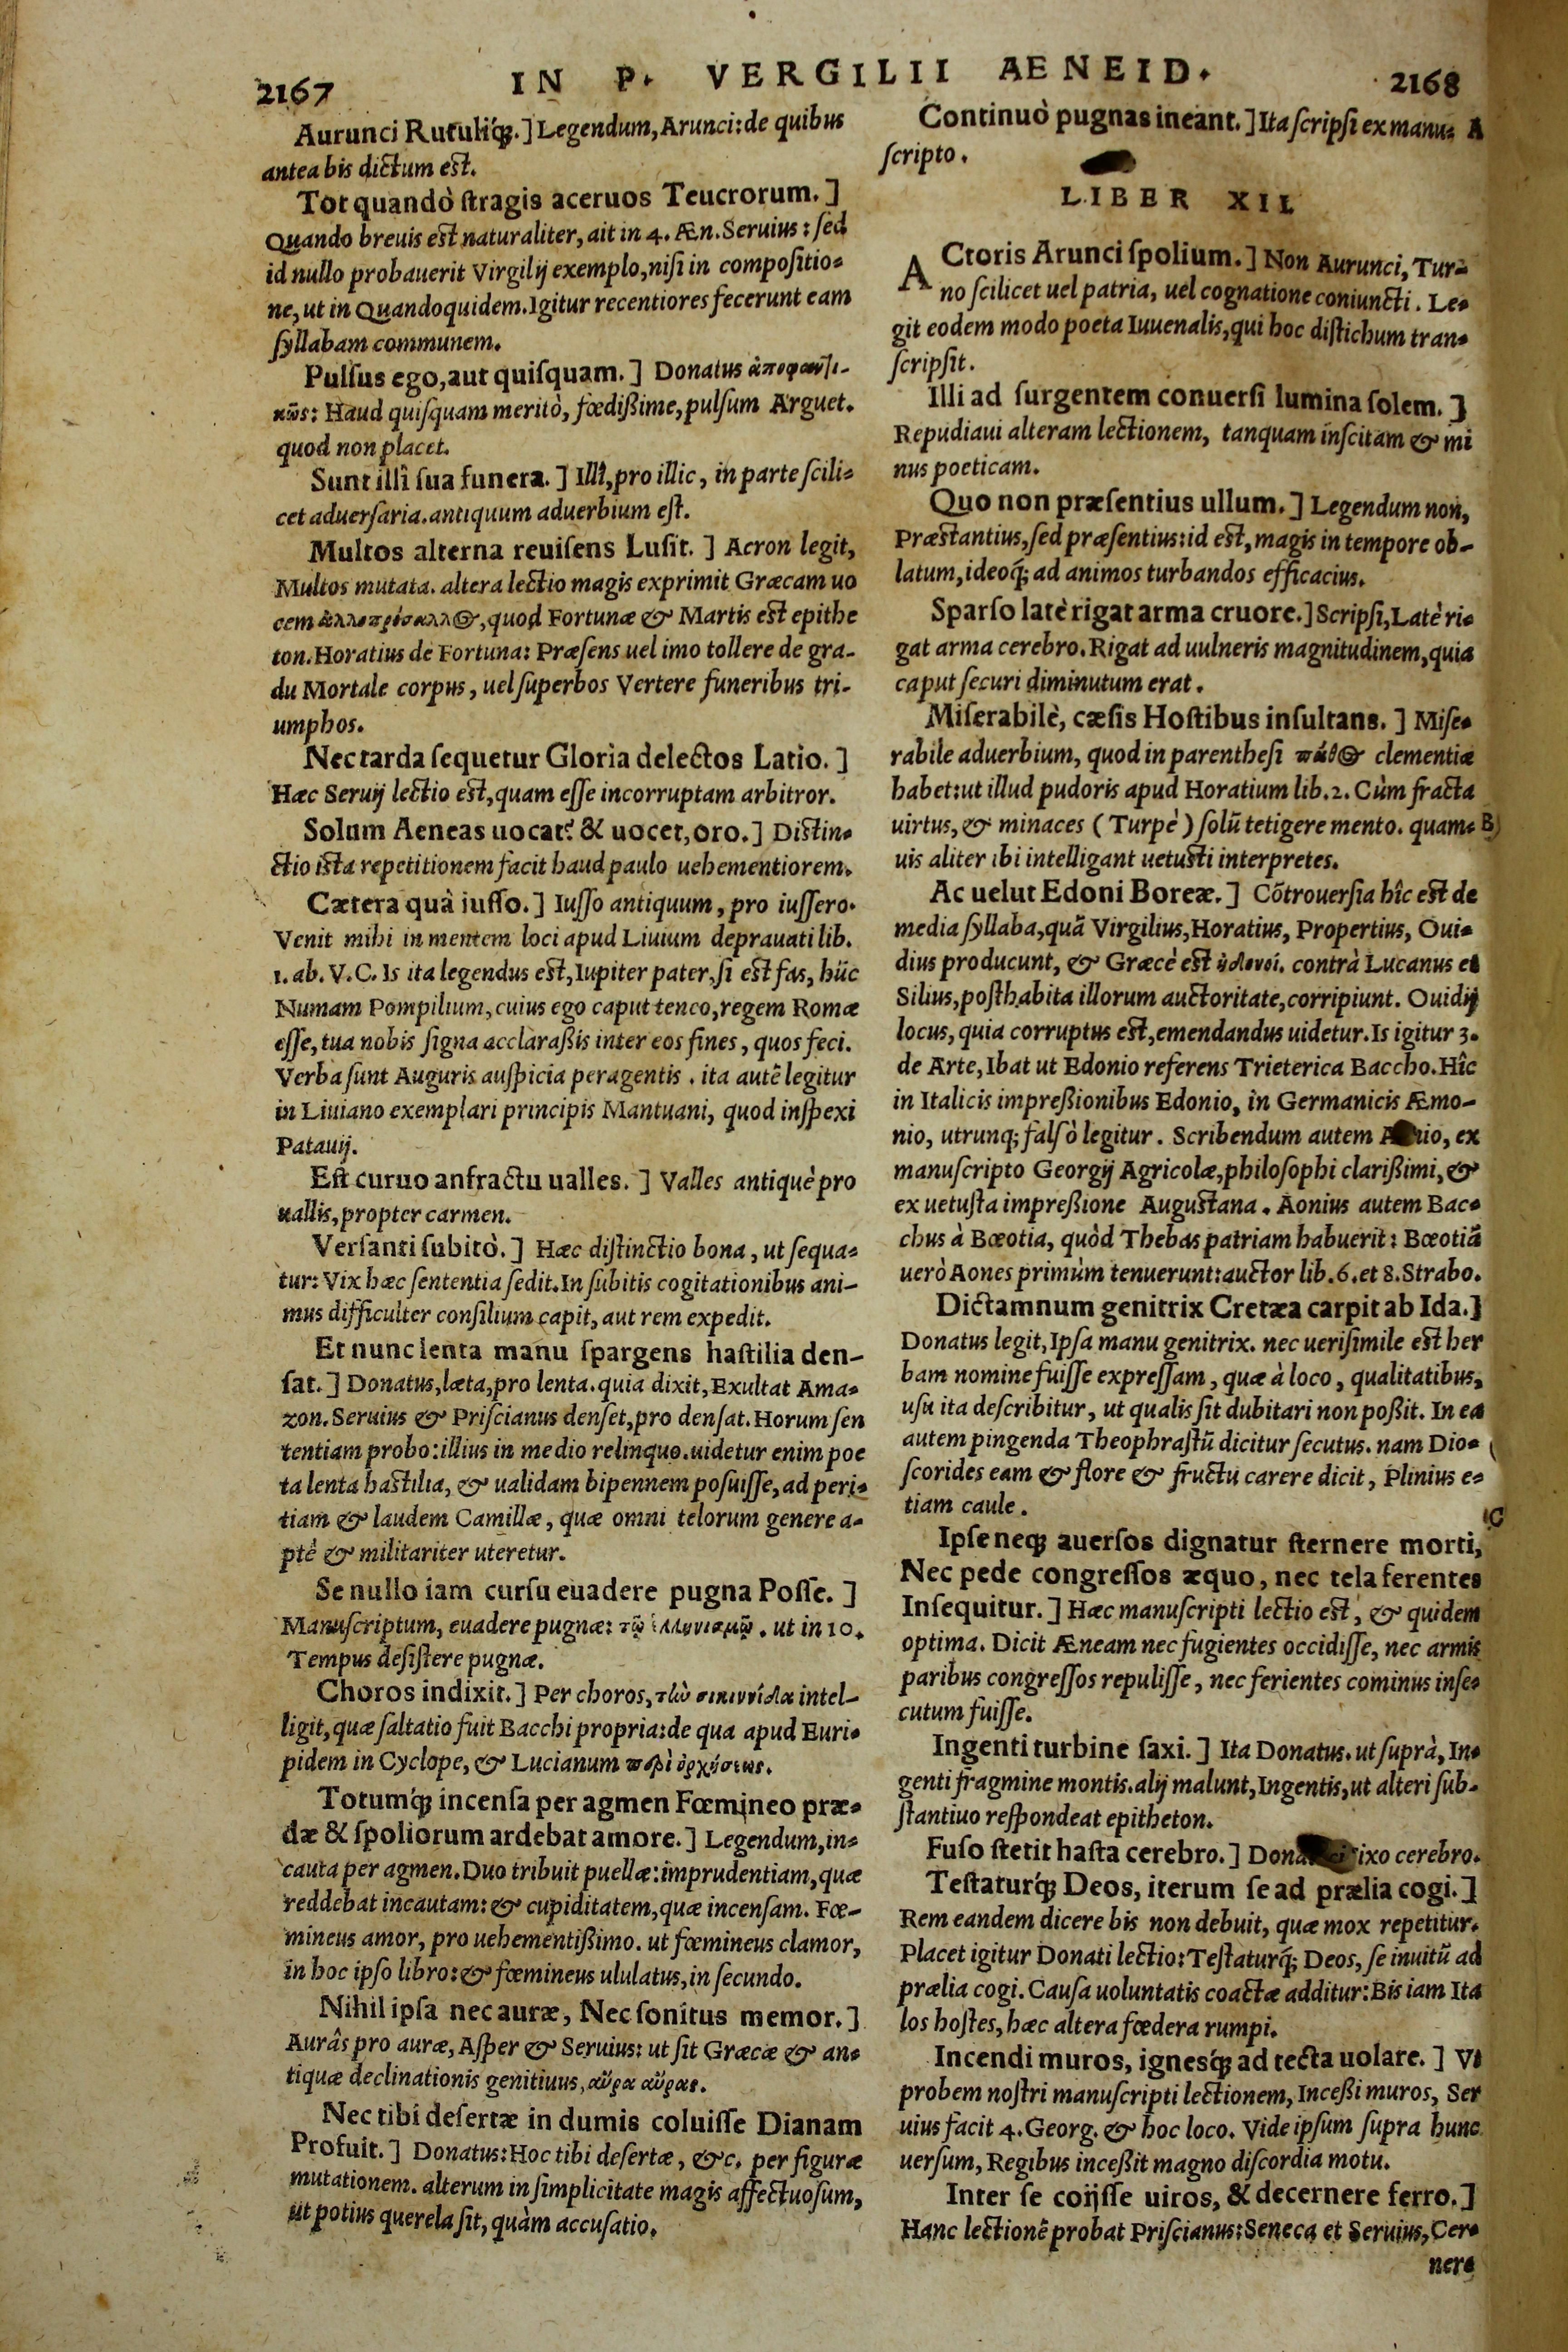 2167
IN P. VERGILII AENEID.
2168
Aurunci Rutuliq́;.] Legendum, Arunci: de quibus
antea bis dictum est.
Tot quandò ſtragis aceruos Teucrorum.]
Quando breuis est naturaliter, ait in 4. Æn. Seruius: ſed
id nullo probauerit Virgilij exemplo, niſi in compoſitio-
ne, ut in Quandoquidem. Igitur recentiores fecerunt eam
ſyllabam communem.
Pulſus ego, aut quiſquam.] Donatus ἀποφαντι-
κῶς: Haud quiſquam meritò, fœdißime, pulſum Arguet.
quod non placet.
Sunt illî ſua funera.] Illî, pro illic, in parte ſcili-
cet aduerſaria. antiquum aduerbium eſt.
Multos alterna reuiſens Luſit.] Acron legit,
Multos mutata. altera lectio magis exprimit Græcam uo
cem ἀλλοπρόσαλλος, quod Fortunæ & Martis est epithe
ton. Horatius de Fortuna: Præſens uel imo tollere de gra-
du Mortale corpus, uel ſuperbos Vertere funeribus tri-
umphos.
Nec tarda ſequetur Gloria delectos Latio.]
Hæc Seruij lectio est, quam eſſe incorruptam arbitror.
Solum Aeneas uocat? & uocet, oro.] Distin-
ctio ista repetitionem facit haud paulo uehementiorem.
Cætera quà iuſſo.] Iuſſo antiquum, pro iuſſero.
Venit mihi in mentem loci apud Liuium deprauati lib.
1. ab. V.C. Is ita legendus est, Iupiter pater, ſi est fas, hūc
Numam Pompilium, cuius ego caput teneo, regem Romæ
eſſe, tua nobis ſigna acclaraßis inter eos fines, quos feci.
Verba ſunt Auguris auſpicia peragentis. ita autē legitur
in Liuiano exemplari principis Mantuani, quod inſpexi
Patauij.
Eſt curuo anfractu ualles.] Valles antiquè pro
uallis, propter carmen.
Verſanti ſubitò.] Hæc diſtinctio bona, ut ſequa-
tur: Vix hæc ſententia ſedit. In ſubitis cogitationibus ani-
mus difficulter conſilium capit, aut rem expedit.
Et nunc lenta manu ſpargens haſtilia den-
ſat.] Donatus, læta, pro lenta. quia dixit, Exultat Ama-
zon. Seruius & Priſcianus denſet, pro denſat. Horum ſen
tentiam probo: illius in medio relinquo. uidetur enim poe
ta lenta hastilia, & ualidam bipennem poſuiſſe, ad peri-
tiam & laudem Camillæ, quæ omni telorum genere a-
ptè & militariter uteretur.
Se nullo iam curſu euadere pugna Poſſe.]
Manuſcriptum, euadere pugnæ: τῷ ἑλληνισμῷ. ut in 10.
Tempus deſiſtere pugnæ.
Choros indixit.] Per choros, τὴν σικιννίδα intel-
ligit, quæ ſaltatio fuit Bacchi propria: de qua apud Euri-
pidem in Cyclope, & Lucianum περὶ ὀρχήσεως.
Totumq́; incenſa per agmen Fœmineo præ-
dæ & ſpoliorum ardebat amore.] Legendum, in-
cauta per agmen. Duo tribuit puellæ: imprudentiam, quæ
reddebat incautam: & cupiditatem, quæ incenſam. Fœ-
mineus amor, pro uehementißimo. ut fœmineus clamor,
in hoc ipſo libro: & fœmineus ululatus, in ſecundo.
Nihil ipſa nec auræ, Nec ſonitus memor.]
Aurâs pro auræ, Aſper & Seruius: ut ſit Græcæ & an-
tiquæ declinationis genitiuus, αὔρα αὔρας.
Nec tibi deſertæ in dumis coluiſſe Dianam
Profuit.] Donatus: Hoc tibi deſertæ, &c. per figuræ
mutationem. alterum in ſimplicitate magis affectuoſum,
ut potius querela ſit, quàm accuſatio.
Continuò pugnas ineant.] Ita ſcripſi ex manu- A
ſcripto.
LIBER XII.
ACtoris Arunci ſpolium.] Non Aurunci, Tur-
no ſcilicet uel patria, uel cognatione coniuncti. Le-
git eodem modo poeta Iuuenalis, qui hoc diſtichum tran-
ſcripſit.
Illi ad ſurgentem conuerſi lumina ſolem.]
Repudiaui alteram lectionem, tanquam inſcitam & mi
nus poeticam.
Quo non præſentius ullum.] Legendum non,
Præstantius, ſed præſentius: id est, magis in tempore ob-
latum, ideoq́; ad animos turbandos efficacius.
Sparſo latè rigat arma cruore.] Scripſi, Latè ri-
gat arma cerebro. Rigat ad uulneris magnitudinem, quia
caput ſecuri diminutum erat.
Miſerabilè, cæſis Hoſtibus inſultans.] Miſe-
rabile aduerbium, quod in parentheſi πάθος clementiæ
habet: ut illud pudoris apud Horatium lib. 2. Cùm fracta
uirtus, & minaces (Turpè) ſolū tetigere mento. quam- B
uis aliter ibi intelligant uetusti interpretes.
Ac uelut Edoni Boreæ.] Cōtrouerſia hîc est de
media ſyllaba, quā Virgilius, Horatius, Propertius, Oui-
dius producunt, & Græcè est ἠδωνοί. contrà Lucanus et
Silius, poſthabita illorum auctoritate, corripiunt. Ouidij
locus, quia corruptus est, emendandus uidetur. Is igitur 3.
de Arte, Ibat ut Edonio referens Trieterica Baccho. Hîc
in Italicis impreßionibus Edonio, in Germanicis Æmo-
nio, utrunq; falſò legitur. Scribendum autem ex
manuſcripto Georgij Agricolæ, philoſophi clarißimi, &
ex uetuſta impreßione Augustana. Aonius autem Bac-
chus à Bœotia, quòd Thebas patriam habuerit: Bœotiā
uerò Aones primùm tenuerunt: auctor lib. 6. et 8. Strabo.
Dictamnum genitrix Cretæa carpit ab Ida.]
Donatus legit, Ipſa manu genitrix. nec ueriſimile est her
bam nomine fuiſſe expreſſam, quæ à loco, qualitatibus,
uſu ita deſcribitur, ut qualis ſit dubitari non poßit. In ea
autem pingenda Theophraſtū dicitur ſecutus. nam Dio-
ſcorides eam & flore & fructu carere dicit, Plinius e-
tiam caule.
C
Ipſe neq; auerſos dignatur ſternere morti,
Nec pede congreſſos æquo, nec tela ferentes
Inſequitur.] Hæc manuſcripti lectio est, & quidem
optima. Dicit Æneam nec fugientes occidiſſe, nec armis
paribus congreſſos repuliſſe, nec ferientes cominus inſe-
cutum fuiſſe.
Ingenti turbine ſaxi.] Ita Donatus. ut ſuprà, In-
genti fragmine montis. alij malunt, Ingentis, ut alteri ſub-
ſtantiuo reſpondeat epitheton.
Fuſo ſtetit haſta cerebro.] cerebro.
Teſtaturq́; Deos, iterum ſe ad prælia cogi.]
Rem eandem dicere bis non debuit, quæ mox repetitur.
Placet igitur Donati lectio: Teſtaturq́; Deos, ſe inuitū ad
prælia cogi. Cauſa uoluntatis coactæ additur: Bis iam Ita
los hoſtes, hæc altera fœdera rumpi.
Incendi muros, ignesq́; ad tecta uolare.] Vt
probem noſtri manuſcripti lectionem, Inceßi muros, Ser
uius facit 4. Georg. & hoc loco. Vide ipſum ſupra hunc
uerſum, Regibus inceßit magno diſcordia motu.
Inter ſe coijſſe uiros, & decernere ferro.]
Hanc lectionē probat Priſcianus: Seneca et Seruius, Cer-
nere